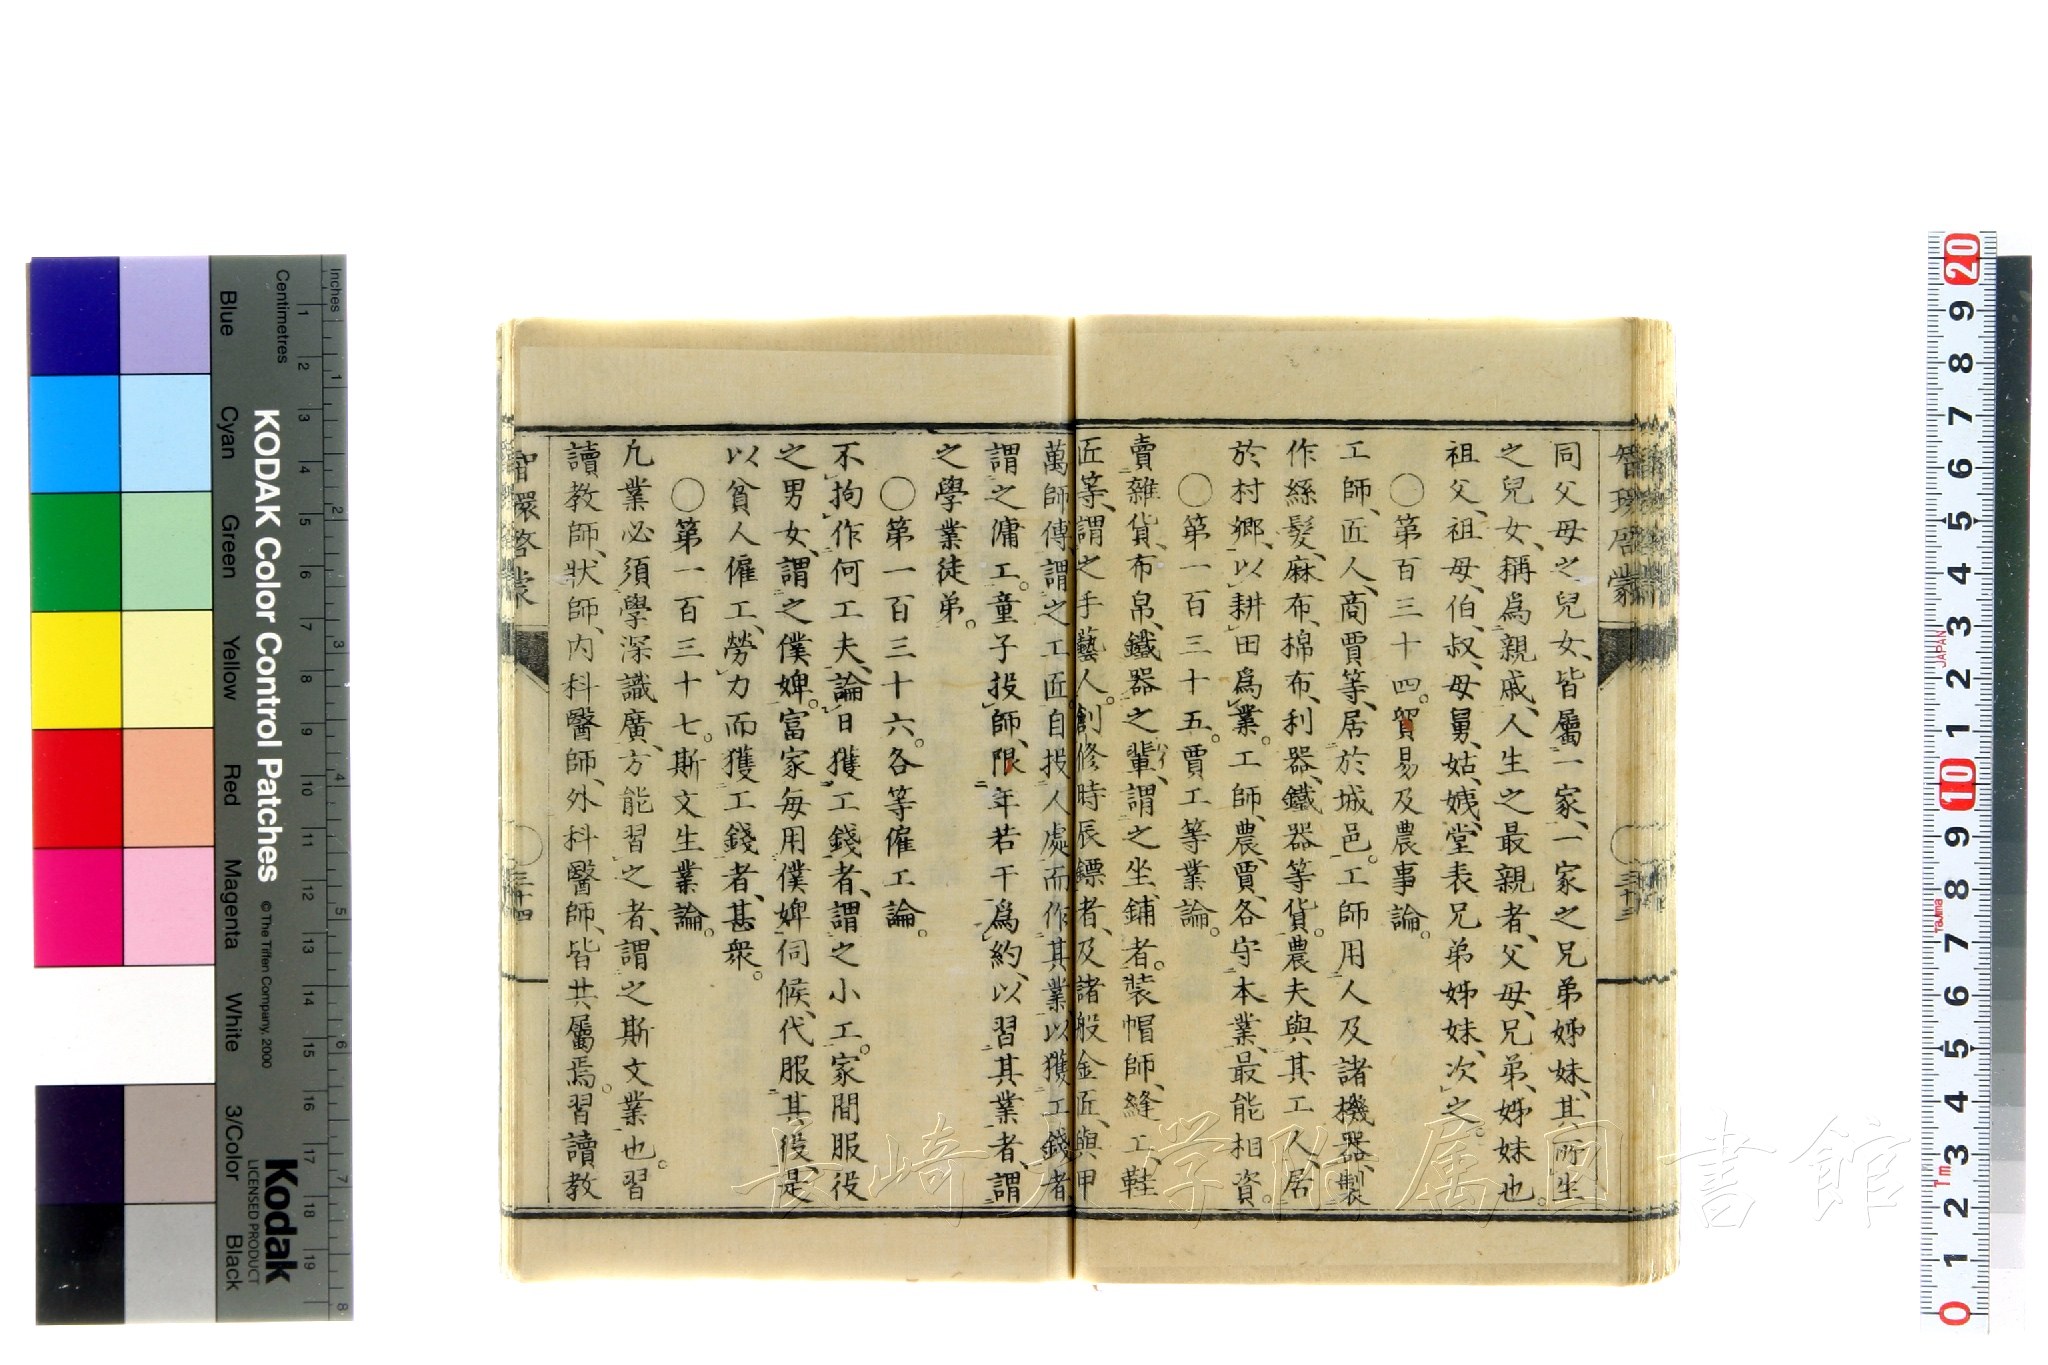 智環啓蒙
三十三
同父母之兒女、皆屬一家、一家之兄弟姊妹、其所生
之兒女、稱爲親戚、人生之最親者、父母、兄弟、姊妹也。
祖父、祖母、伯、叔、母、舅、姑、姨、堂表兄弟姊妹、次之。
〇第百三十四。貿易及農事論。
工師、匠人、商賈等、居於城邑。工師用人及諸機器、製
作絲髮、麻布、棉布、利器、鐵器等貨。農夫與其工人、居
於村鄉、以耕田爲業。工師、農、賈、各守本業、最能相資。
〇第一百三十五。賈工等業論。
賣雜貨、布帛、鐵器之輩、謂之坐鋪者。裝帽師、縫工、鞋
匠等、謂之手藝人。創修時辰鏢者、及諸般金匠、與甲
萬師傅、謂之工匠。自投人處而作其業以獲工錢者
謂之傭工。童子投師、限年若干爲約、以習其業者、謂
之學業徒弟。
〇第一百三十六。各等僱工論。
不拘作何工夫、論日獲工錢者、謂之小工。家間服役
之男女、謂之僕婢。富家每用僕婢伺候、代服其役、是
以貧人僱工、勞力而獲工錢者、甚衆。
〇第一百三十七。斯文生業論。
凢業必須學深識廣、方能習之者、謂之斯文業也。習
讀教師、狀師、内科醫師、外科醫師、皆共屬焉。習讀教
智環啓蒙
三十四
長崎大学附属図書館
Inches
Centimetres
Blue
Cyan
Green
Yellow
Red
Magenta
White
3/Color
Black
KODAK Color Control Patches
© The Tiffen Company, 2000
Kodak
LICENSED PRODUCT
1 2 3 4 5 6 7 8 9 10 11 12 13 14 15 16 17 18 19
1 2 3 4 5 6 7 8
20 9 8 7 6 5 4 3 2 1 10 9 8 7 6 5 4 3 2 1 0
JAPAN
Tajima
Tm